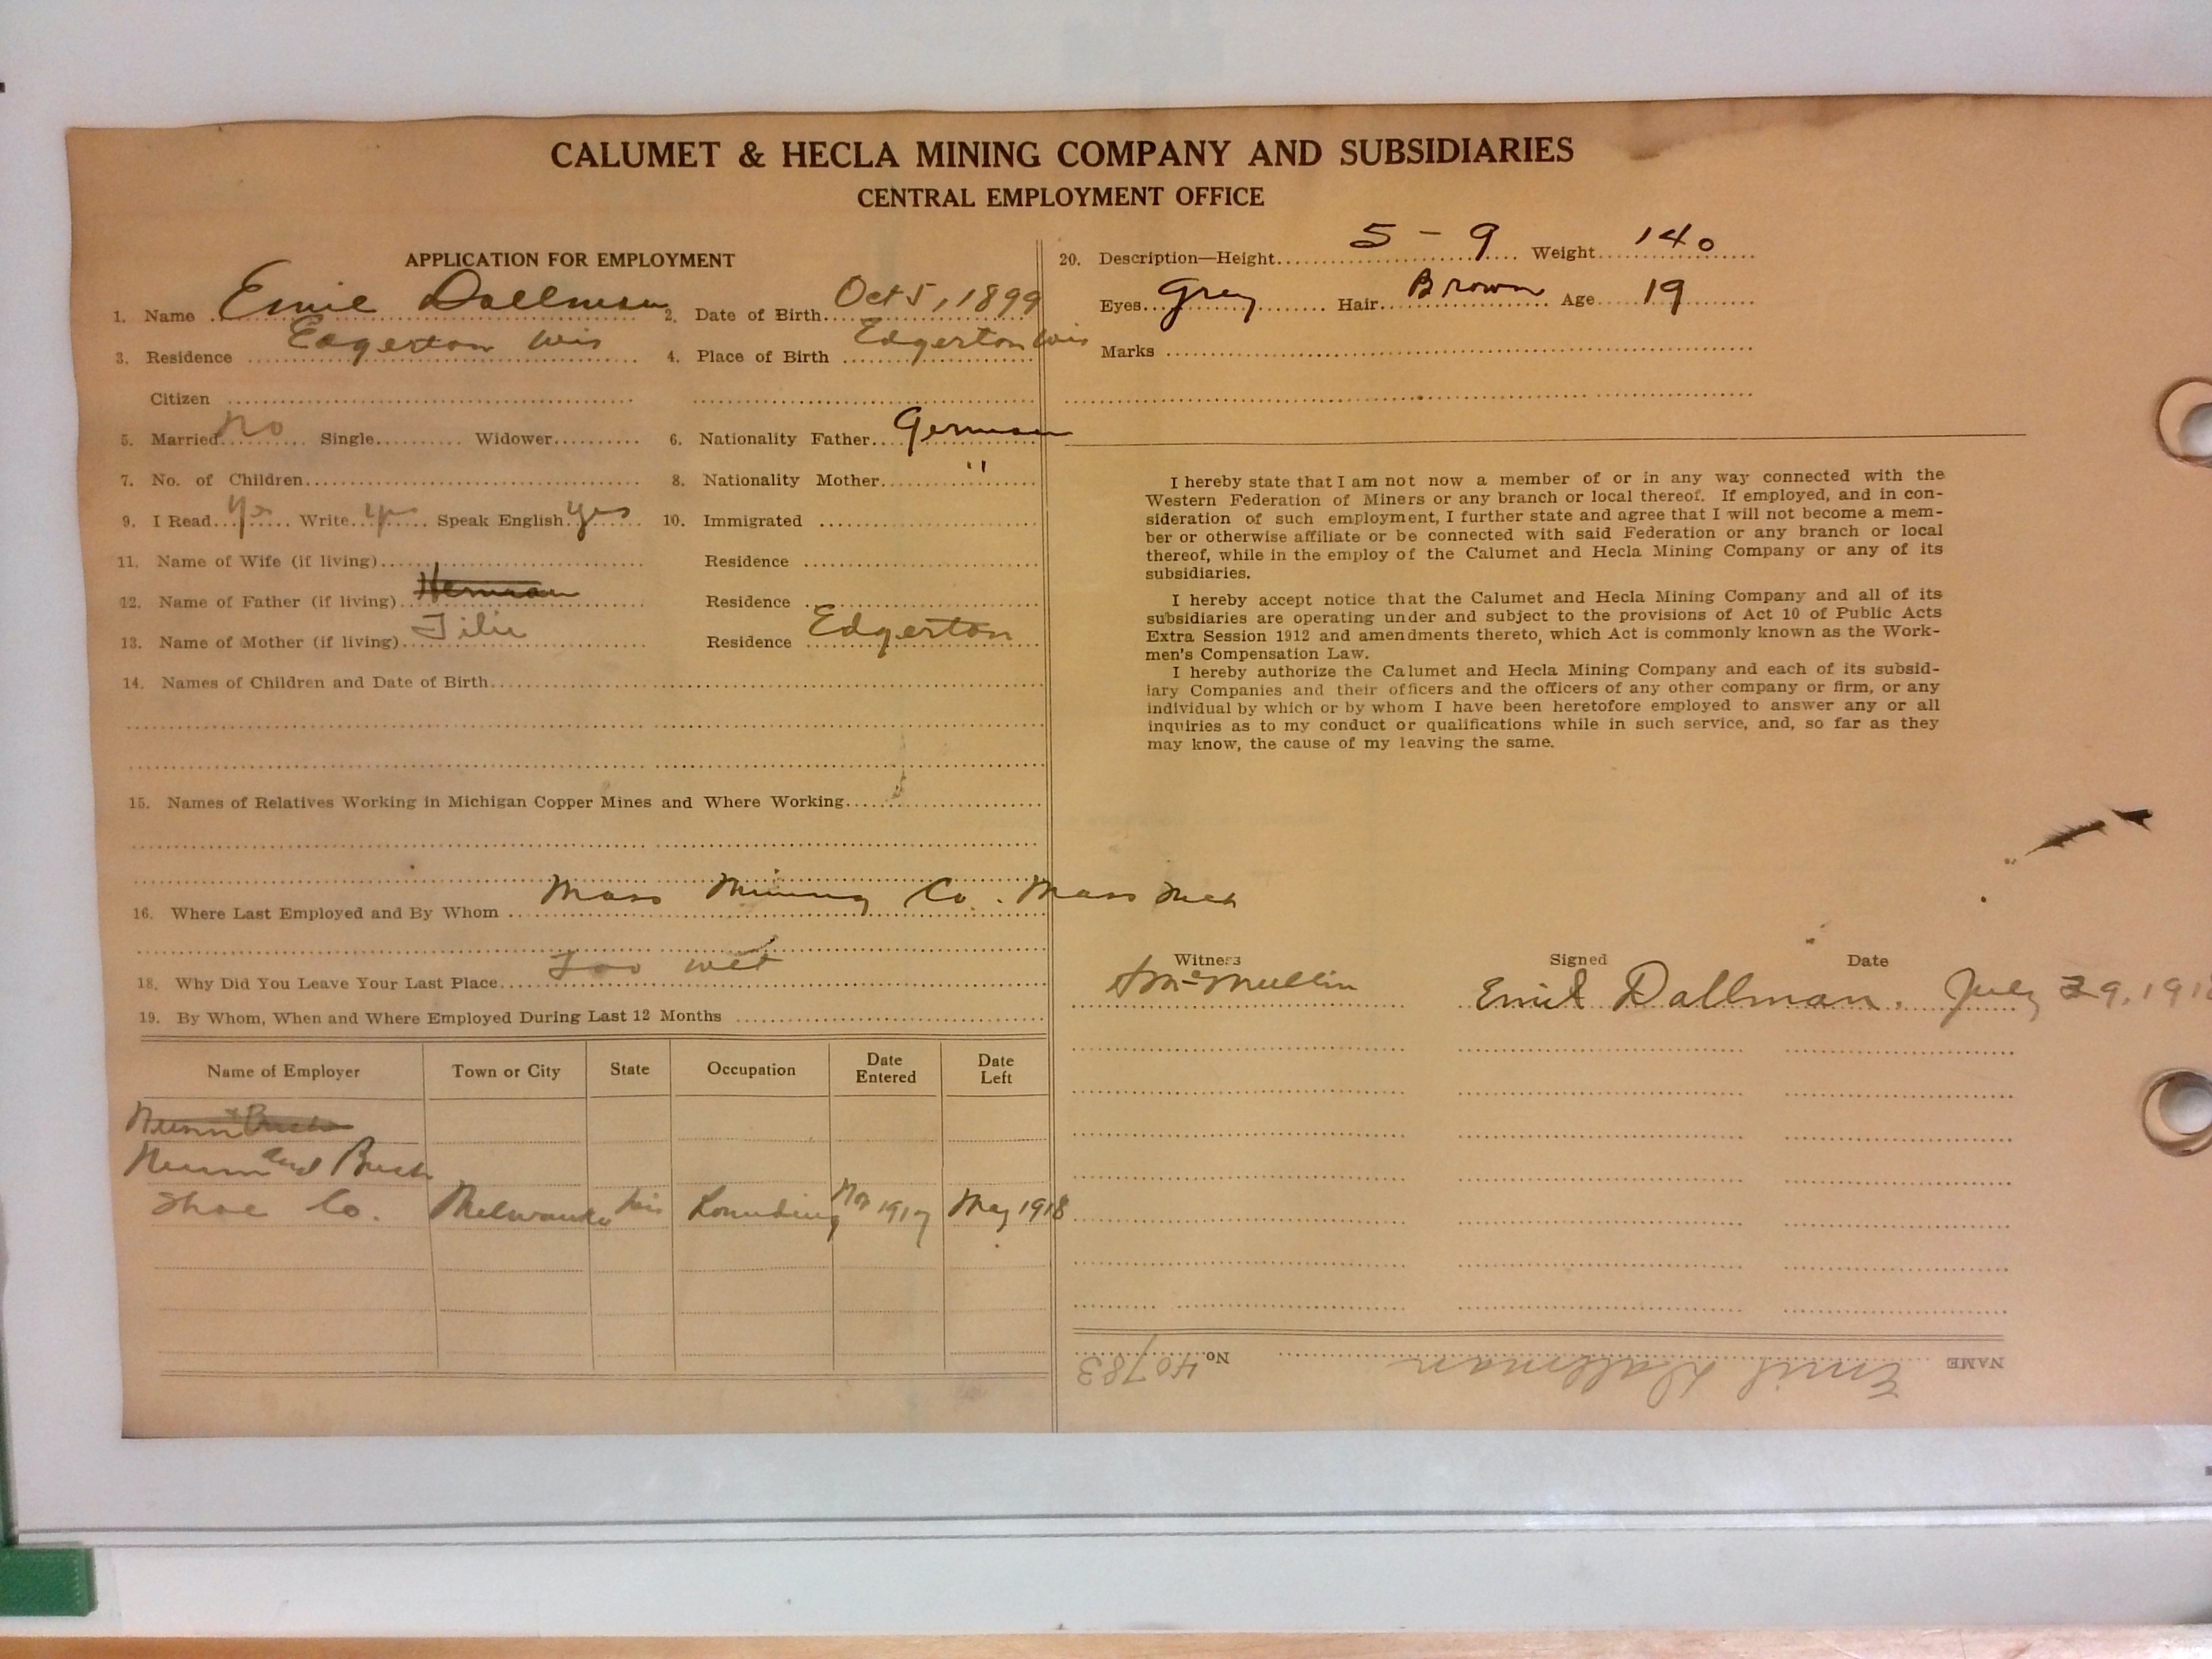 CALUMET & HECLA MINING COMPANY AND SUBSIDIARIES
CENTRAL EMPLOYMENT OFFICE
APPLICATION FOR EMPLOYMENT
1. Name Emil Dallman 2. Date of Birth Oct 5, 1899
3. Residence Edgerton Wis 4. Place of Birth Edgerton Wis
Citizen
5. Married No Single Widower 6. Nationality Father German
7. No. of Children 8. Nationality Mother "
9. I Read Yes Write yes Speak English yes 10. Immigrated
11. Name of Wife (if living) Residence
12. Name of Father (if living) Herman Residence
13. Name of Mother (if living) Tilie Residence Edgerton
14. Names of Children and Date of Birth
15. Names of Relatives Working in Michigan Copper Mines and Where Working
16. Where Last Employed and By Whom Mass Mining Co. Mass Mich
18. Why Did You Leave Your Last Place Too wet
19. By Whom, When and Where Employed During Last 12 Months
Name of Employer Town or City State Occupation Date Entered Date Left
Nunn & Bush
Nunn and Bush
Shoe Co. Milwaukee Wis Nov 1917 May 1918
20. Description—Height 5-9 Weight 140
Eyes Grey Hair Brown Age 19
Marks
I hereby state that I am not now a member of or in any way connected with the
Western Federation of Miners or any branch or local thereof. If employed, and in con-
sideration of such employment, I further state and agree that I will not become a mem-
ber or otherwise affiliate or be connected with said Federation or any branch or local
thereof, while in the employ of the Calumet and Hecla Mining Company or any of its
subsidiaries.
I hereby accept notice that the Calumet and Hecla Mining Company and all of its
subsidiaries are operating under and subject to the provisions of Act 10 of Public Acts
Extra Session 1912 and amendments thereto, which Act is commonly known as the Work-
men's Compensation Law.
I hereby authorize the Calumet and Hecla Mining Company and each of its subsid-
iary Companies and their officers and the officers of any other company or firm, or any
individual by which or by whom I have been heretofore employed to answer any or all
inquiries as to my conduct or qualifications while in such service, and, so far as they
may know, the cause of my leaving the same.
Witness Signed Date
McMullin Emil Dallman. July 29, 1918
NAME Emil Dallman No. 40783